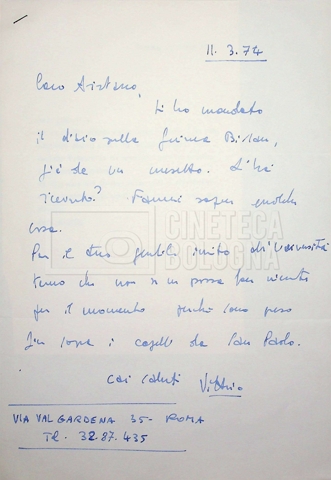 11. 3. 74
Caro Aristarco,
ti ho mandato
il
già da un mesetto. L'hai
ricevuto? Fammi sapere qualche
cosa.
Per il tuo gentile invito all'Università
temo che non si possa far niente
per il momento perché sono preso
fin sopra i capelli da San Paolo.
Cari saluti Vittorio
VIA VAL GARDENA 35 - ROMA
Tel. 32.87.435
CINETECA
BOLOGNA